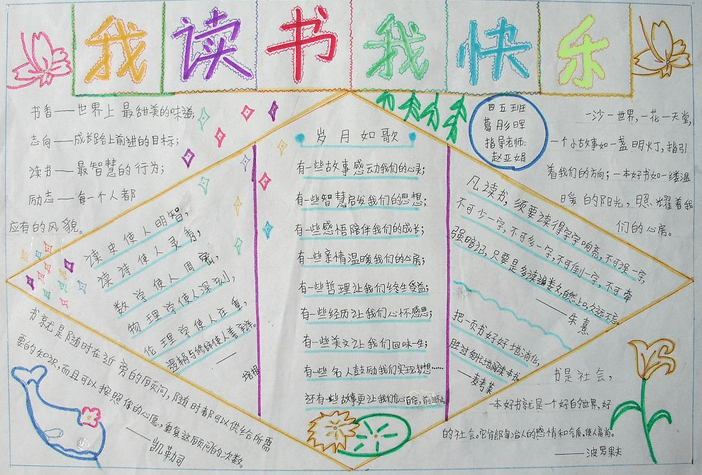 我读书我快乐
书香——世界上最甜美的味道
志向——成长路上前进的目标;
读书——最智慧的行为;
励志——每一个人都
应有的风貌。
四五班
葛彤晖
指导老师:
赵亚娟
一沙一世界,一花一天堂,
一个小故事如一盏明灯,指引
着我们的方向;一本好书如一缕温
暖的阳光,照耀着我
们的心房。
读史使人明智,
读诗使人灵秀,
数学使人周密,
物理学使人深刻,
伦理学使人庄重,
逻辑与修辞使人善辩。
——培根
岁月如歌
有一些故事感动我们的心灵;
有一些智慧启发我们的思想;
有一些感悟陪伴我们的成长;
有一些亲情温暖我们的心房;
有一些哲理让我们终生受益;
有一些经历让我们心怀感恩;
有一些美文让我们回味一生;
有一些名人鼓励我们实现梦想……
还有一些故事更让我们
凡读书,须要读得字字响亮,不可误一字,
不可少一字,不可多一字,不可倒一字,不可牵
强暗记,只要是多读遍数,自然上口,久远不忘。
——朱熹
把一页书好好地消化,
胜过匆忙地阅读一本书。
——麦考莱
书就是随时在近旁的顾问,随时都可以供给所需
要的知识,而且可以按照你的心愿,重复这顾问的次数。
——凯勒司
书是社会,
一本好书就是一个好的世界,好
的社会。它能陶冶人的感情和气质,使人高尚。
——波罗果夫